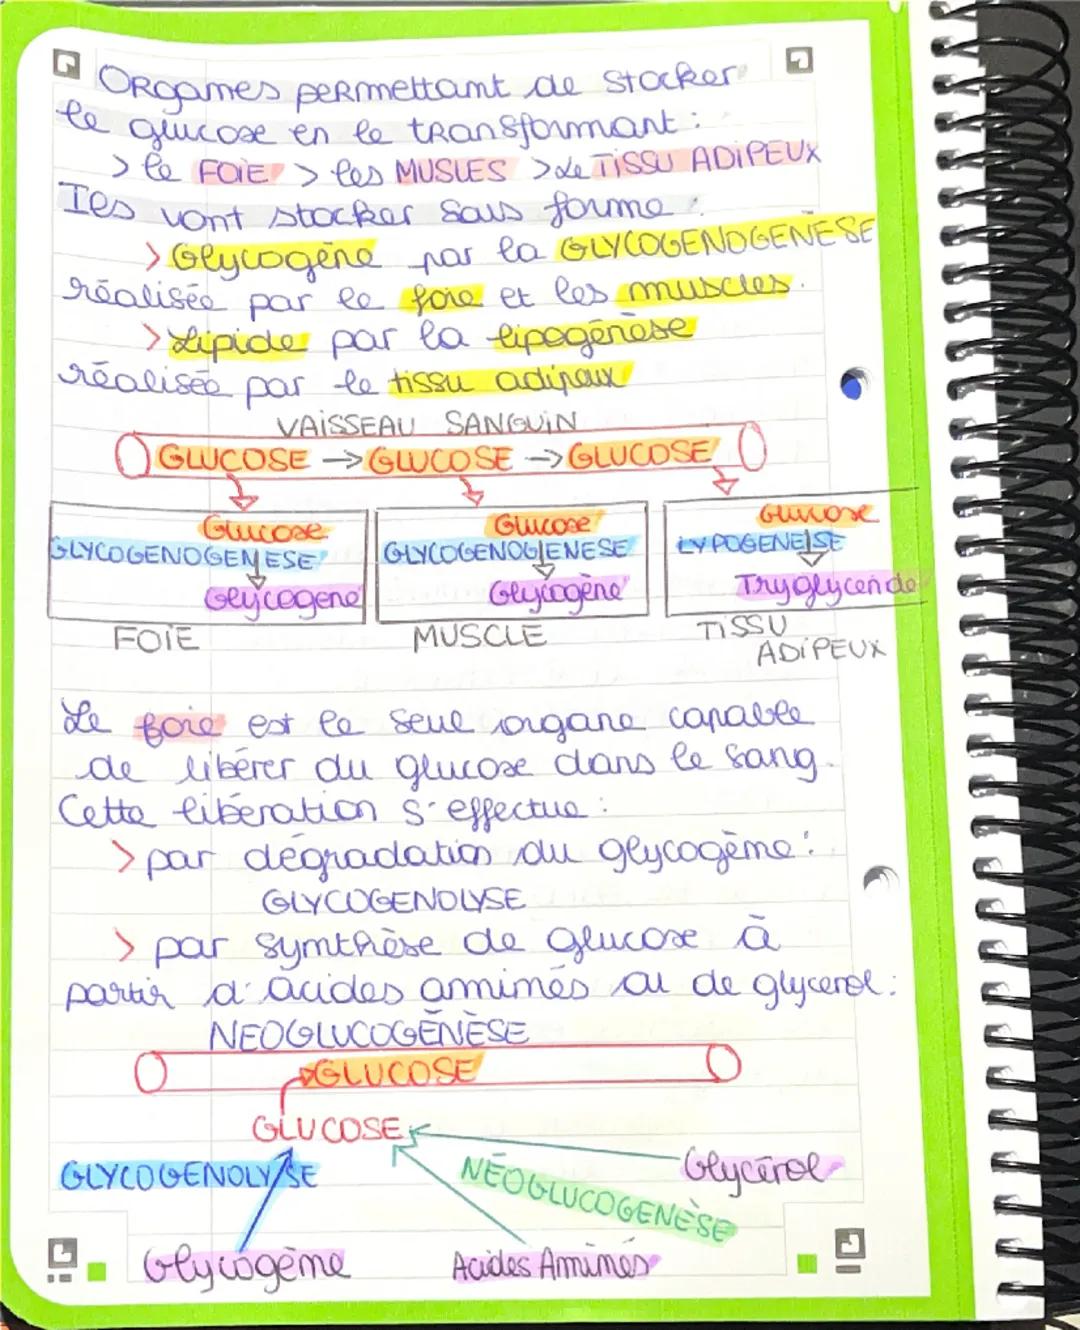 ORganes peRmettant de stocker
le glucose en le tRansformant :
> le FOIE > les MUSLES > Le TiSSU ADiPEUX
Ies vont stocker sous forme :
> Glycogène par la GLYCOGENOGENÈSE
réalisée par le foie et les muscles.
> Lipide par la lipogénèse
réalisée par le tissu adipeux
VAiSSEAU SANGUiN
GLUCOSE → GLUCOSE → GLUCOSE
Glucose Glucose Glucose
GLYCOGENOGENESE GLYCOGENOGENESE LYPOGENESE
Glycogene Glycogène Tryglyceride
FOiE MUSCLE TiSSU
ADiPEUX
Le foie est le seul organe capable
de libérer du glucose dans le sang.
Cette libération s'effectue :
> par dégradation du glycogène :
GLYCOGENOLYSE
> par synthèse de glucose à
partir d'acides aminés ou de glycerol :
NEOGLUCOGÉNÈSE
GLUCOSE
GLUCOSE
GLYCOGENOLYSE NÉOGLUCOGENÈSE Glycérol
Glycogène Acides Aminés